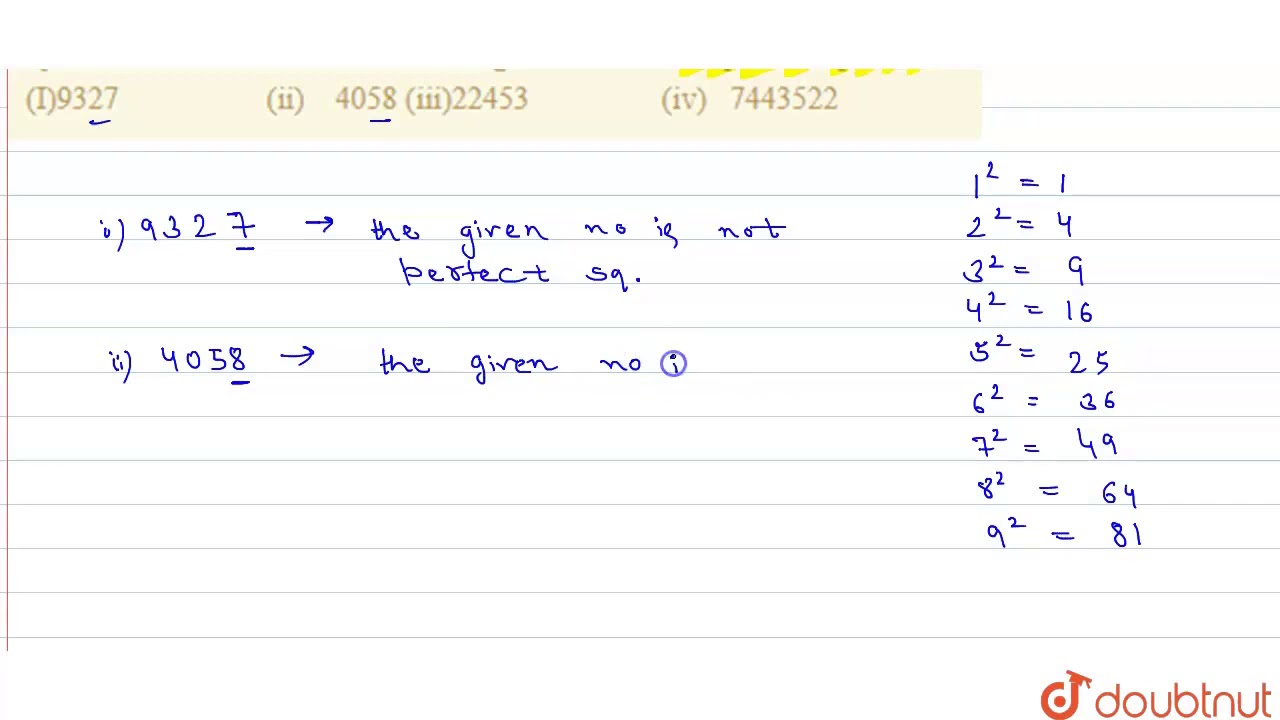 (I)9327 (ii) 4058 (iii)22453 (iv) 7443522
i) 9327 → the given no is not
perfect sq.
ii) 4058 → the given no i
1² = 1
2² = 4
3² = 9
4² = 16
5² = 25
6² = 36
7² = 49
8² = 64
9² = 81
doubtnut